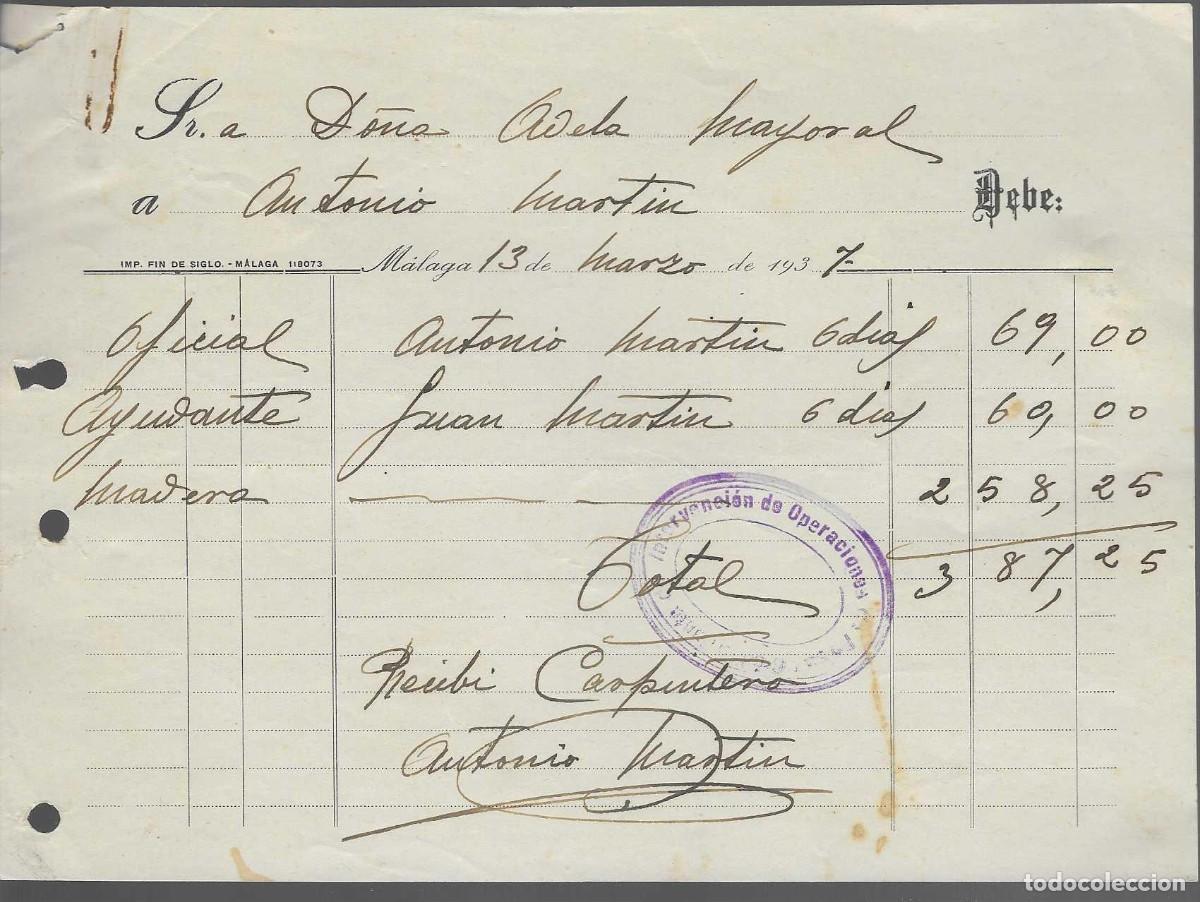 Sr.a Doña Adela Mayoral
a Antonio Martin Debe:
IMP. FIN DE SIGLO. - MÁLAGA 118073 Málaga 13 de Marzo de 1937-
Oficial Antonio Martin 6 dias 69,00
Ayudante Juan Martin 6 dias 60,00
Madera 258,25
Intervención de Operaciones
Total 387,25
Recibi Carpintero
Antonio Martin
todocoleccion